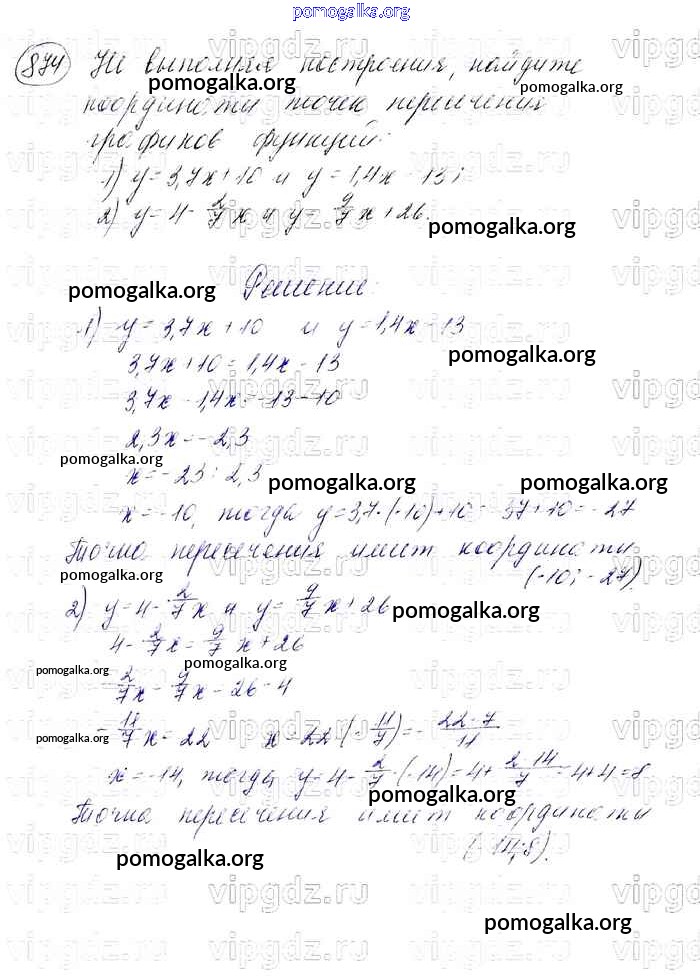 pomogalka.org
874 Не выполняя построения, найдите
координаты точек пересечения
графиков функций:
1) y = 3,7x + 10 и y = 1,4x - 13;
2) y = 4 - 2/7 x и y = 9/7 x + 26.
Решение.
1) y = 3,7x + 10 и y = 1,4x - 13
3,7x + 10 = 1,4x - 13
3,7x - 1,4x = -13 - 10
2,3x = -2,3
x = -23 : 2,3
x = -10, тогда y = 3,7 · (-10) + 10 = -37 + 10 = -27
Точка пересечения имеет координаты
(-10; -27).
2) y = 4 - 2/7 x и y = 9/7 x + 26
4 - 2/7 x = 9/7 x + 26
-2/7 x - 9/7 x = 26 - 4
-11/7 x = 22 x = 22 : (-11/7) = - 22 · 7 / 11
x = -14, тогда y = 4 - 2/7 · (-14) = 4 + 2 · 14 / 7 = 4 + 4 = 8
Точка пересечения имеет координаты
(-14; 8).
pomogalka.org
vipgdz.ru